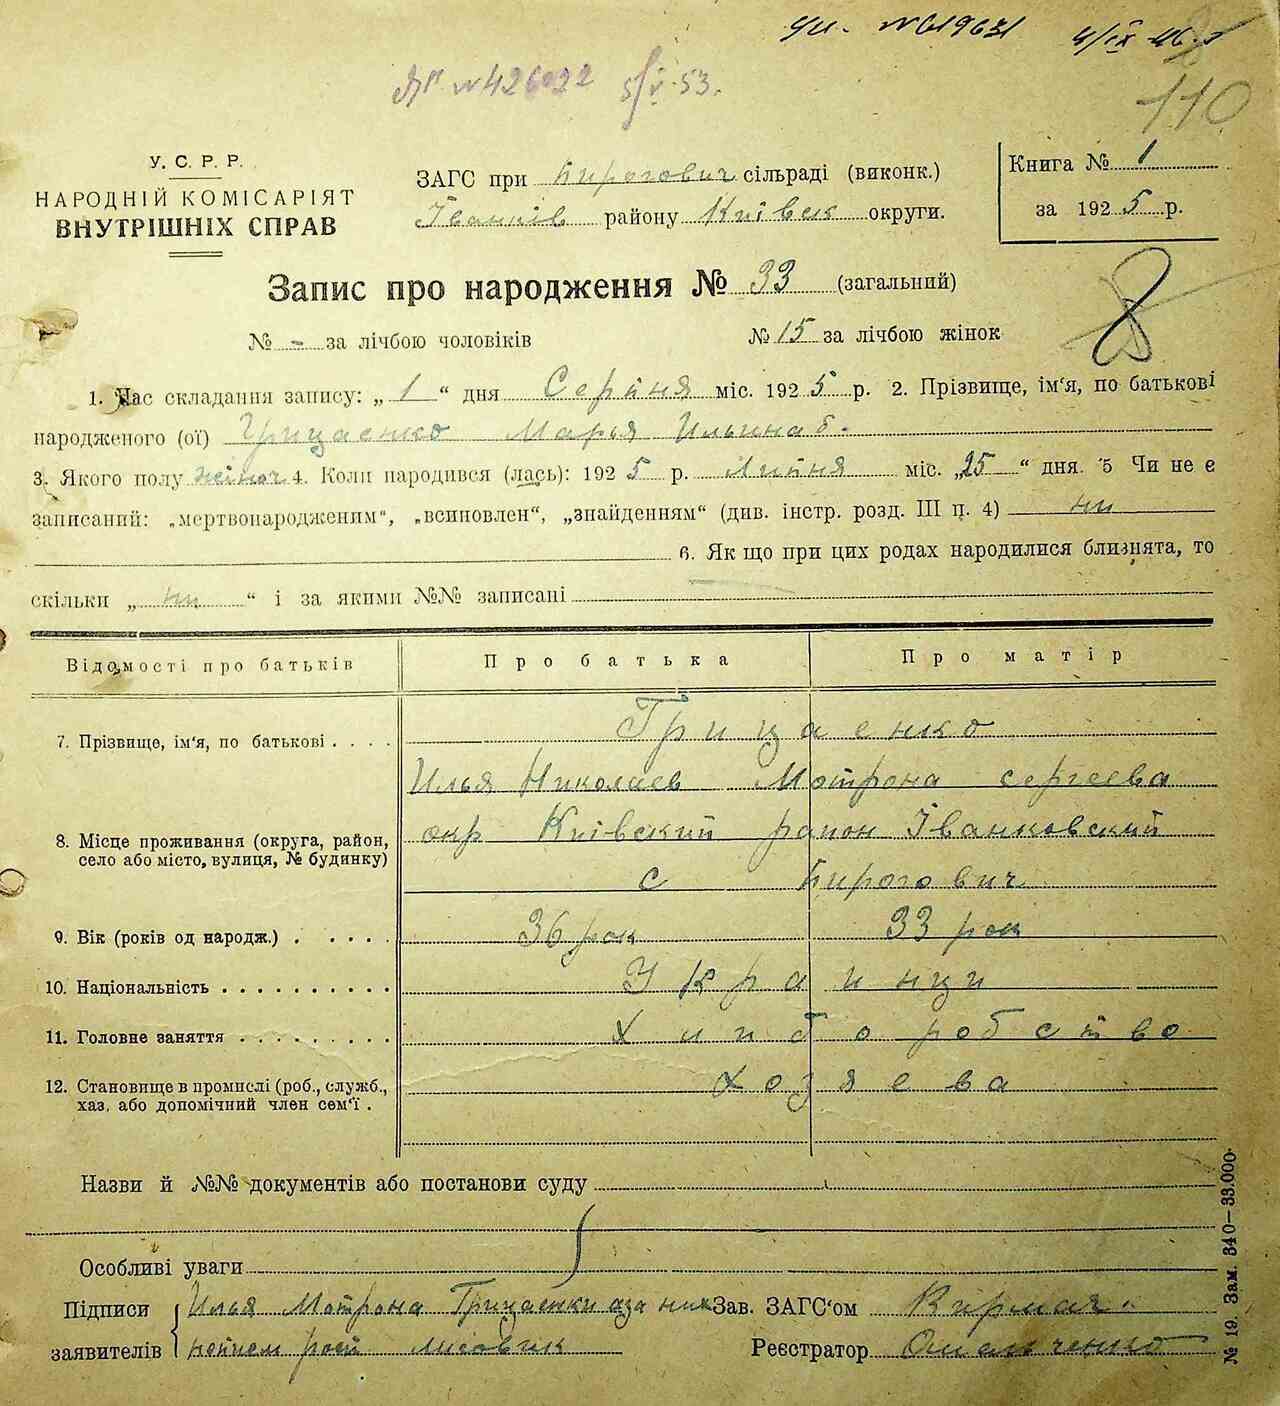 №619631 4/IX 46 р
№ 426022 5/V-53.
110
У. С. Р. Р.
НАРОДНІЙ КОМІСАРІЯТ
ВНУТРІШНІХ СПРАВ
ЗАГС при Пирогович сільраді (виконк.)
Іванків району Київск округи.
Книга № 1
за 1925 р.
Запис про народження № 33 (загальний)
8
№ - за лічбою чоловіків № 15 за лічбою жінок
1. Час складання запису: „ 1 “ дня Серпня міс. 1925 р. 2. Прізвище, ім‘я, по батькові
народженого (ої) Грицаенко Марья Ильина
3. Якого полу жіноч 4. Коли народився (лась): 1925 р. Липня міс. „25 “ дня. 5 Чи не є
записаний: „мертвонародженим“, „всиновлен“, „знайденням“ (див. інстр. розд. III п. 4) ни
6. Як що при цих родах народилися близнята, то
скільки „ ни “ і за якими №№ записані
Відомості про батьків Про батька Про матір
7. Прізвище, ім‘я, по батькові . . . . Грицаенко
Илья Николаев Мотрона сергеева
8. Місце проживання (округа, район,
село або місто, вулиця, № будинку)
окр Київский район Іванковский
с Пирогович
9. Вік (років од народж.) . . . . . 36 рок 33 рок
10. Національність . . . . . . . . . . Украинци
11. Головне заняття . . . . . . . . . Хлиборобство
12. Становище в промислі (роб., служб.,
хаз. або допомічний член сем‘ї .
хозяева
Назви й №№ документів або постанови суду
Особливі уваги
Підписи Илья Мотрона Грицаенки а за них Зав. ЗАГС‘ом
заявителів рост лисовик Реєстратор Омельченко
№ 19. Зам. 340—33.000.